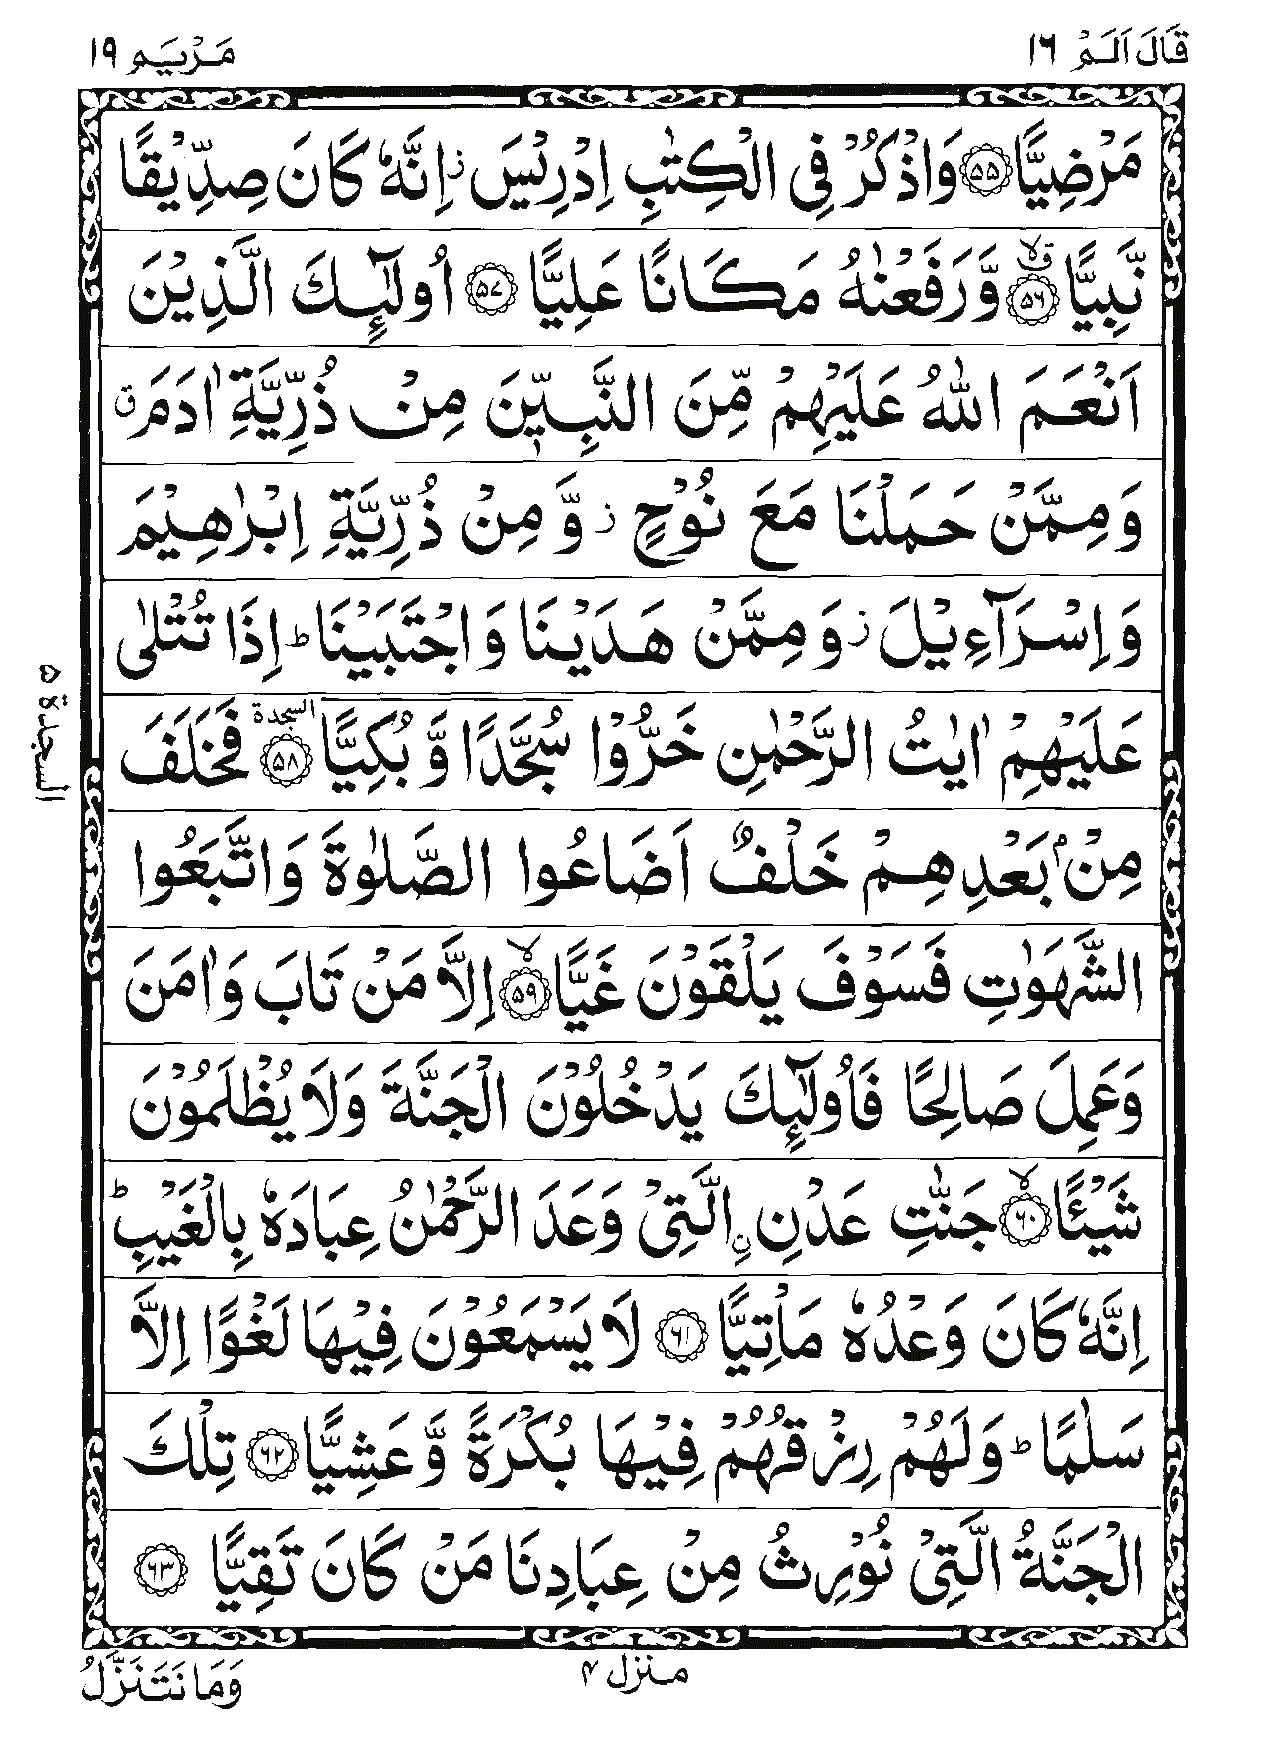 قَالَ اَلَمْ ١٦
مَرْيَم ١٩
مَرْضِيًّا ﴿٥٥﴾ وَاذْكُرْ فِى الْكِتٰبِ اِدْرِيْسَ ز اِنَّهٗ كَانَ صِدِّيْقًا
نَّبِيًّا ﴿٥٦﴾ ق لا وَّرَفَعْنٰهُ مَكَانًا عَلِيًّا ﴿٥٧﴾ اُولٰٓئِكَ الَّذِيْنَ
اَنْعَمَ اللّٰهُ عَلَيْهِمْ مِّنَ النَّبِيّٖنَ مِنْ ذُرِّيَّةِ اٰدَمَ ق
وَمِمَّنْ حَمَلْنَا مَعَ نُوْحٍ ز وَّمِنْ ذُرِّيَّةِ اِبْرٰهِيْمَ
وَاِسْرَآءِيْلَ ز وَمِمَّنْ هَدَيْنَا وَاجْتَبَيْنَا ط اِذَا تُتْلٰى
عَلَيْهِمْ اٰيٰتُ الرَّحْمٰنِ خَرُّوْا سُجَّدًا وَّبُكِيًّا ﴿٥٨﴾ السجدة فَخَلَفَ
السجدة ٥
مِنْۢ بَعْدِهِمْ خَلْفٌ اَضَاعُوا الصَّلٰوةَ وَاتَّبَعُوا
الشَّهَوٰتِ فَسَوْفَ يَلْقَوْنَ غَيًّا ﴿٥٩﴾ لا اِلَّا مَنْ تَابَ وَاٰمَنَ
وَعَمِلَ صَالِحًا فَاُولٰٓئِكَ يَدْخُلُوْنَ الْجَنَّةَ وَلَا يُظْلَمُوْنَ
شَيْئًا ﴿٦٠﴾ لا جَنّٰتِ عَدْنِ ۨالَّتِىْ وَعَدَ الرَّحْمٰنُ عِبَادَهٗ بِالْغَيْبِ ط
اِنَّهٗ كَانَ وَعْدُهٗ مَاْتِيًّا ﴿٦١﴾ لَا يَسْمَعُوْنَ فِيْهَا لَغْوًا اِلَّا
سَلٰمًا ط وَلَهُمْ رِزْقُهُمْ فِيْهَا بُكْرَةً وَّعَشِيًّا ﴿٦٢﴾ تِلْكَ
الْجَنَّةُ الَّتِىْ نُوْرِثُ مِنْ عِبَادِنَا مَنْ كَانَ تَقِيًّا ﴿٦٣﴾
منزل ٤
وَمَا نَتَنَزَّلُ